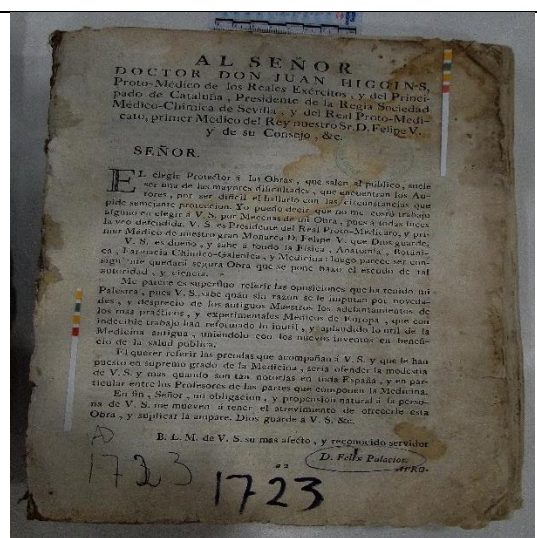 AL SEÑOR
DOCTOR DON JUAN HIGGINS,
Proto-Medico de los Reales Exércitos, y del Princi-
pado de Cataluña, Presidente de la Regia Sociedad
Medico-Chimica de Sevilla, y del Real Proto-Medi-
cato, primer Medico del Rey nuestro Sr. D. Felipe V.
y de su Consejo, &c.
SEÑOR.
EL elegir Protector á las Obras, que salen al público, suele
ser una de las mayores dificultades, que encuentran los Au-
tores, por ser dificil el hallarlo con las circunstancias que
pide semejante proteccion. Yo puedo decir que no me costó trabajo
alguno en elegir á V. S. por Mecenas de mi Obra, pues á todas luces
la veo defendida. V. S. es Presidente del Real Proto-Medicato, y pri-
mer Medico de nuestro gran Monarca D. Felipe V. que Dios guarde,
V. S. es dueño, y sabe á fondo la Fisica, Anatomía, Botáni-
ca, Farmacia Chîmico-Galenica, y Medicina: luego parece ser con-
siguiente quedará segura Obra que se pone baxo el escudo de tal
autoridad, y ciencia.
Me parece es superfluo referir las oposiciones que ha tenido mi
Palestra, pues V. S. sabe quán sin razon se le imputan por noveda-
des, y desprecio de los antiguos Maestros los adelantamientos de
los mas prácticos, y experimentales Medicos de Europa, que con
indecible trabajo han refutando lo inutil, y aplaudido lo util de la
Medicina antigua, uniendolo con los nuevos inventos en benefi-
cio de la salud pública.
El querer referir las prendas que acompañan á V. S. y que le han
puesto en supremo grado de la Medicina, sería ofender la modestia
de V. S. y mas quando son tan notorias en toda España, y en par-
ticular entre los Profesores de las partes que componen la Medicina.
En fin, Señor, mi obligacion, y propension natural á la perso-
na de V. S. me mueven á tener el atrevimiento de ofrecerle esta
Obra, y suplicar la ampare. Dios guarde á V. S. &c.
B. L. M. de V. S. su mas afecto, y reconocido servidor
D. Felix Palacios.
a2
APRO-
1723
1723